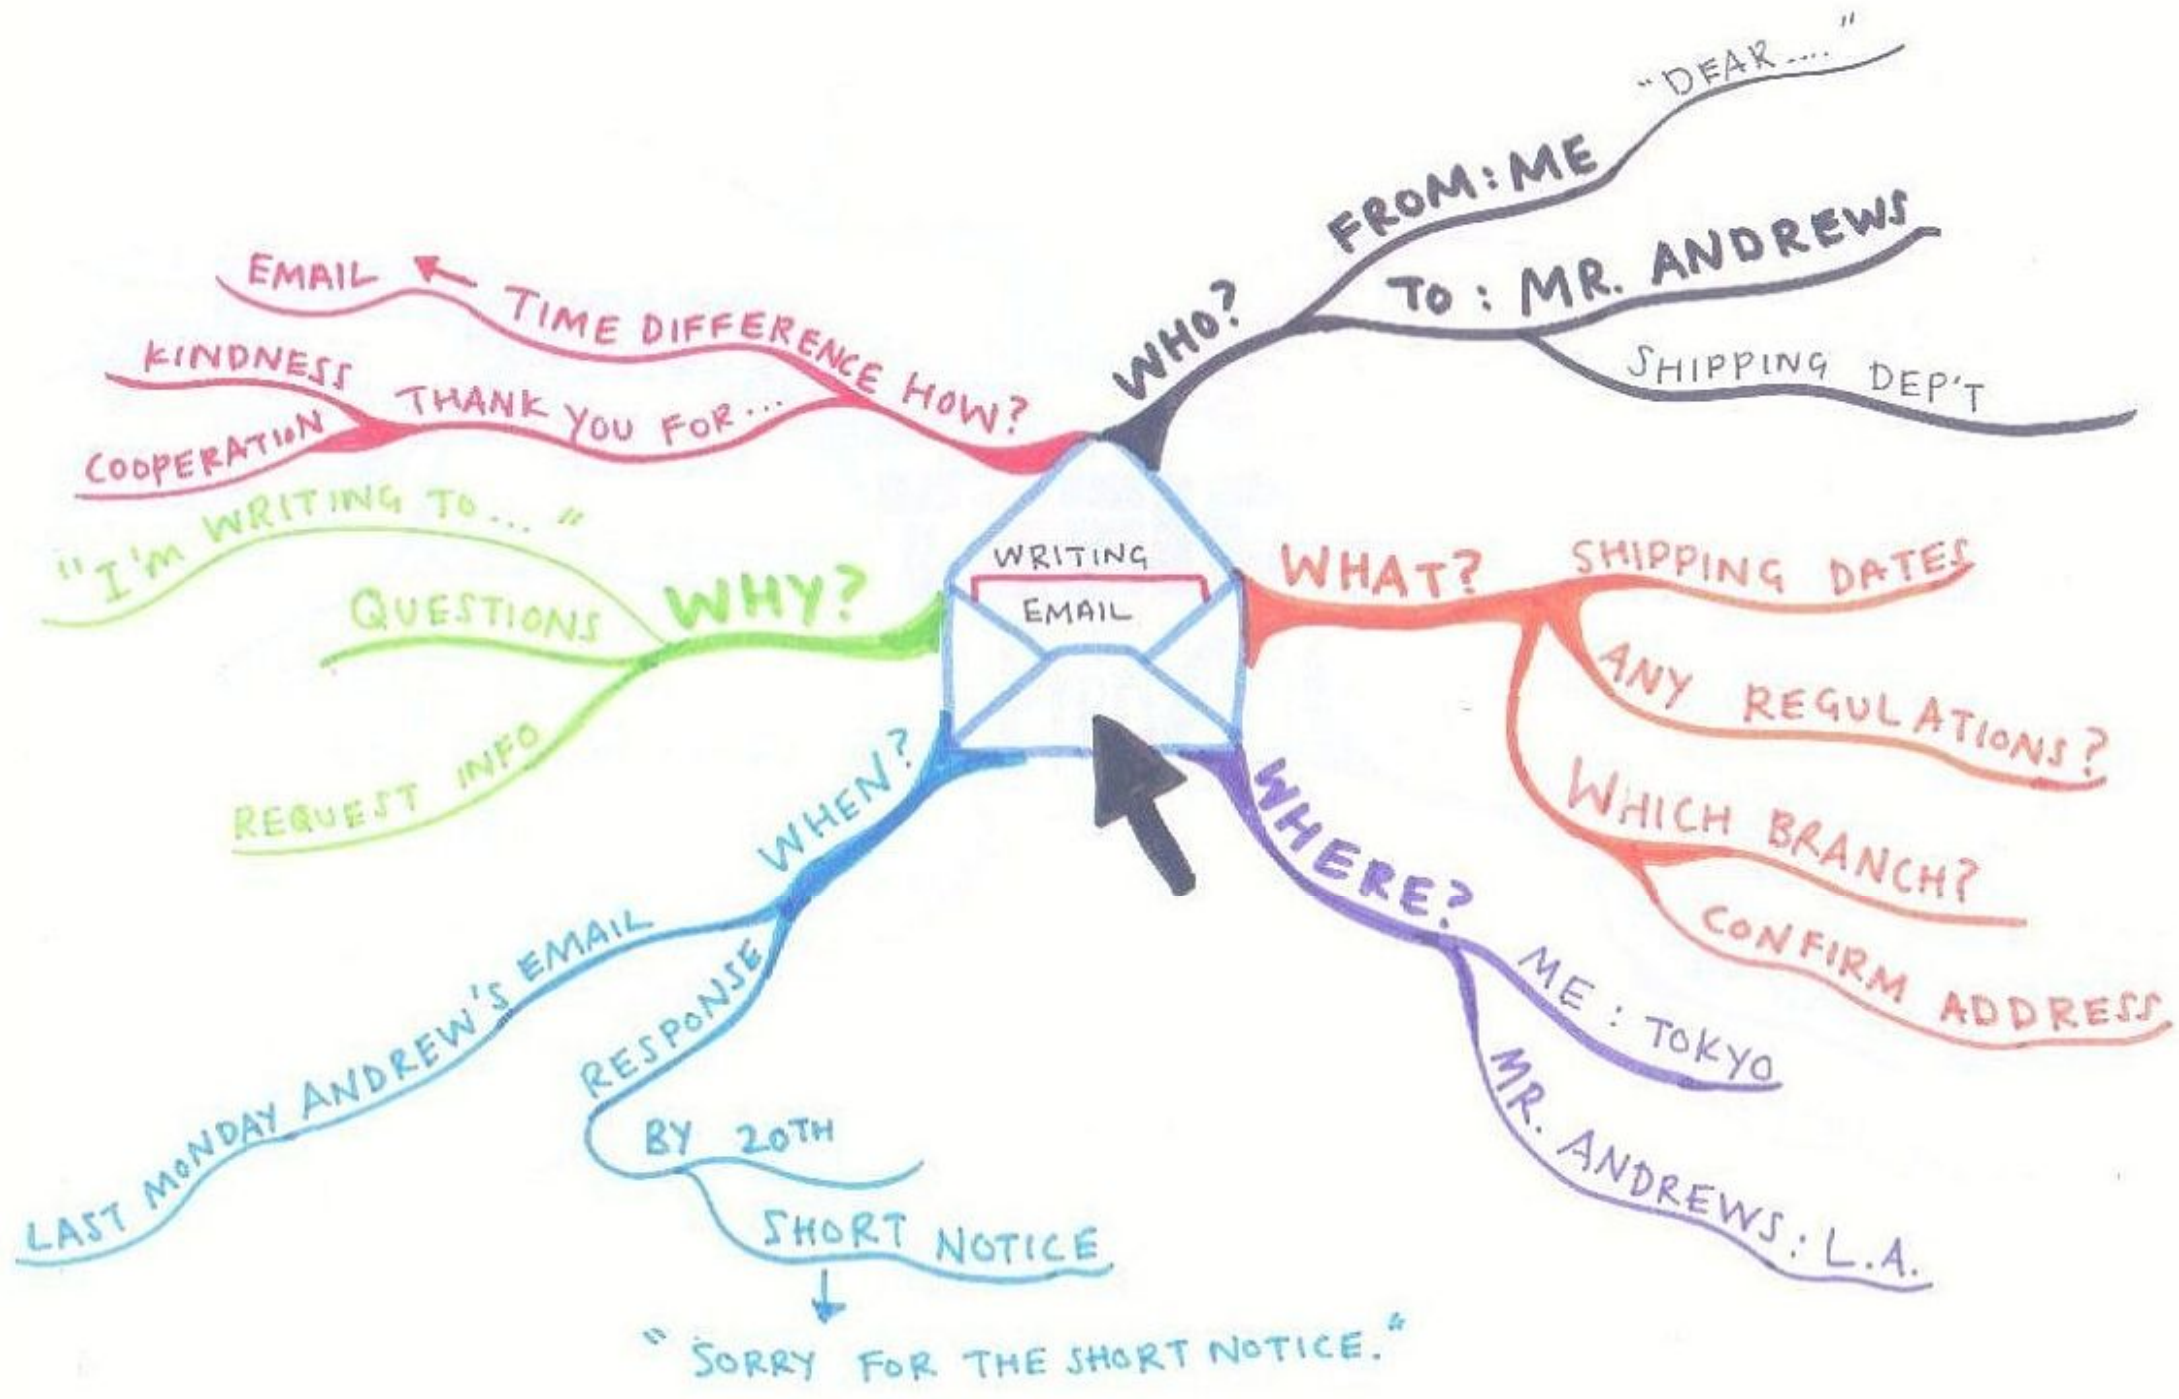 WRITING
EMAIL
WHO?
FROM: ME
"DEAR...."
TO: MR. ANDREWS
SHIPPING DEP'T
WHAT?
SHIPPING DATES
ANY REGULATIONS?
WHICH BRANCH?
CONFIRM ADDRESS
WHERE?
ME: TOKYO
MR. ANDREWS: L.A.
WHEN?
LAST MONDAY ANDREW'S EMAIL
RESPONSE
BY 20TH
SHORT NOTICE
"SORRY FOR THE SHORT NOTICE."
WHY?
"I'M WRITING TO..."
QUESTIONS
REQUEST INFO
HOW?
TIME DIFFERENCE
EMAIL
THANK YOU FOR...
KINDNESS
COOPERATION